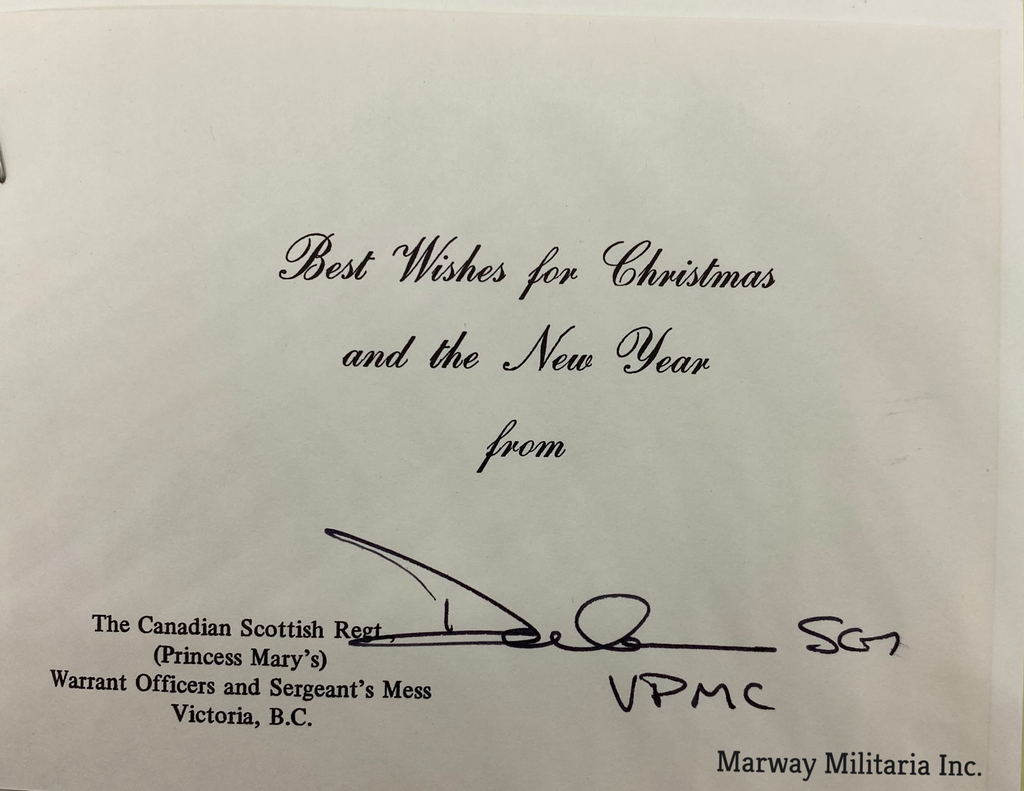 Best Wishes for Christmas
and the New Year
from
The Canadian Scottish Regt.
(Princess Mary's)
Warrant Officers and Sergeant's Mess
Victoria, B.C.
SGT
VPMC
Marway Militaria Inc.